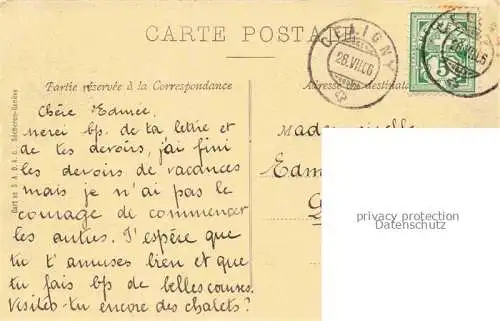 CARTE POSTALE
CÉLIGNY
28.VII.06
5
Partie réservée à la Correspondance
Chère Edmée.
Merci bp. de ta lettre et
de tes devoirs, j'ai fini
les devoirs de vacances
mais je n'ai pas le
courage de commencer
les autres. J'espère que
tu t'amuses bien et que
tu fais bp de belles courses.
Visites-tu encore des chalets?
Adresse du destinata
Mademoiselle
Edm
privacy protection
Datenschutz